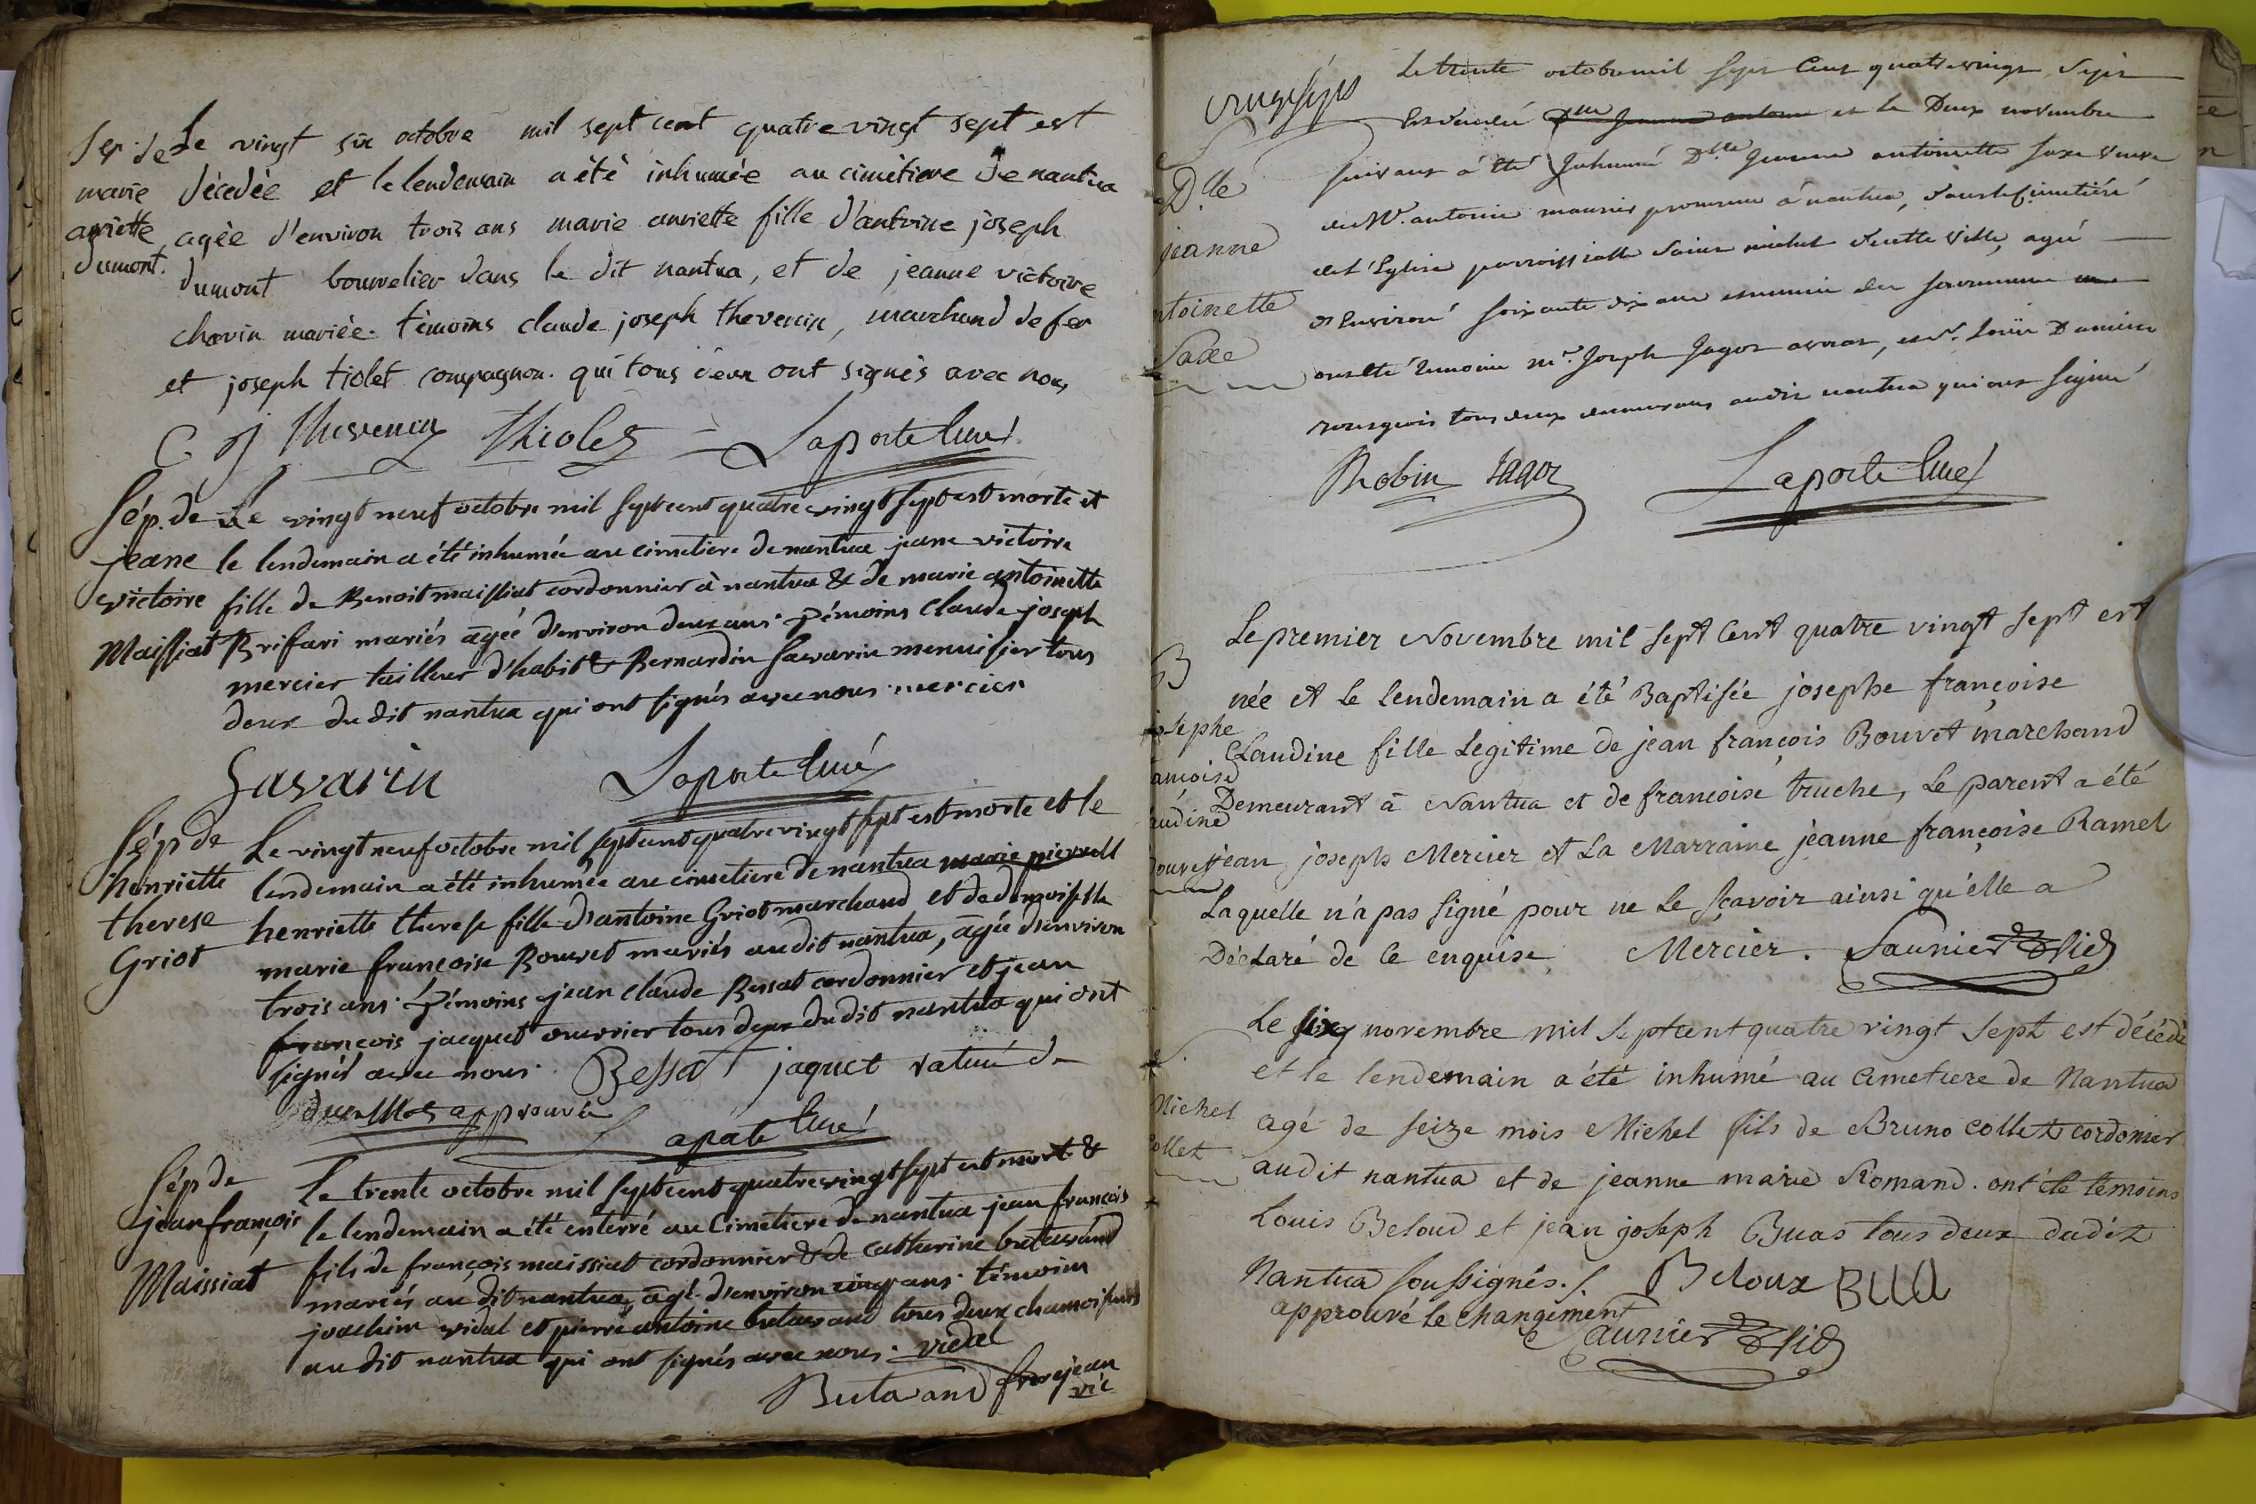 Sep. de Le vingt six octobre mil sept cent quatre vingt sept est
marie décedée et le lendemain a été inhumée au cimetiere de nantua
anriette agèe d'environ trois ans marie anriette fille d'antoine joseph
dumont. dumont bourrelier dans le dit nantua, et de jeanne victoire
chavin mariée. témoins claude joseph thevenin, marchand de fer
et joseph tiolet compagnon. qui tous deux ont signés avec nous
C. j Thevenin Thiolet Laporte Curé
Sép. de Le vingt neuf octobre mil sept cent quatre vingt sept est morte et
jeane le lendemain a été inhumée au cimetiere de nantua jeane victoire
victoire fille de Benoit maissiat cordonnier à nantua & de marie antoinette
Maissiat Brifari mariés agée d'environ deux ans. témoins Claude joseph
mercier tailleur d'habit & Bernardin Savarin menuisier tous
deux du dit nantua qui ont signés avec nous. mercier
Savarin Laporte Curé
Sép de Le vingt neuf octobre mil sept cent quatre vingt sept est morte et le
henriette lendemain a été inhumée au cimetiere de nantua marie pierrette
therese henriette therese fille d'antoine Griot marchand et de demoiselle
Griot marie françoise Bouvet mariés au dit nantua, agée d'environ
trois ans. témoins jean claude Bessat cordonnier et jean
françois jacquet ouvrier tous deux du dit nantua qui ont
signés avec nous. Bessat jaquet rature de
deux mots approuvée
Laporte Curé
Sép de Le trente octobre mil sept cent quatre vingt sept est mort &
jean françois le lendemain a été enterré au Cimetiere de nantua jean françois
Maissiat fils de françois maissiat cordonnier & de Catherine butavand
mariés au dit nantua, agé d'environ cinq ans. témoins
joachim vidal et pierre antoine butavand tous deux chamoiseurs
au dit nantua qui ont signés avec nous. vidal
Butavand frerejean
vic
Le trente octobre mil sept Cent quatre vingt sept
est décédé Dlle jeanne antoine et le Deux novembre
suivant a été Inhumé Dlle jeanne antoinette saxe veuve
Dlle de Mr. antoine procureur à nantua, dans le Cimetiéré
jeanne de l'Eglise parroissialle saint michel de cette ville, agé
ntoinette d'Environ soixante dix ans munie des sacremens
Saxe ont été temoins Mr. Joseph Jagot avocat, et Sr.
tous deux demeurans audit nantua qui ont signé
Robin Jagot Laporte Curé
Le premier Novembre mil sept Cent quatre vingt sept est
B née et le lendemain a été Baptisée josephe françoise
josephe Claudine fille Legitime de jean françois Bouvet marchand
ançoise Demeurant à Nantua et de françoise truche, Le parent a été
audine jean joseph Mercier et La Marraine jeanne françoise Ramel
Bouvet Laquelle n'a pas signé pour ne Le sçavoir ainsi qu'elle a
Déclaré de ce enquise Mercier. Saunier Vic
Le six novembre mil sept cent quatre vingt sept est décédé
S. et le lendemain a été inhumé au Cimetiere de Nantua
Michel agé de seize mois Michel fils de Bruno collet cordonier
ollet audit nantua et de jeanne marie Romand. ont été temoins
Louis Beloud et jean joseph Buas tous deux dudit
Nantua soussignés. Beloux BUA
approuvé le changement
Saunier Vic